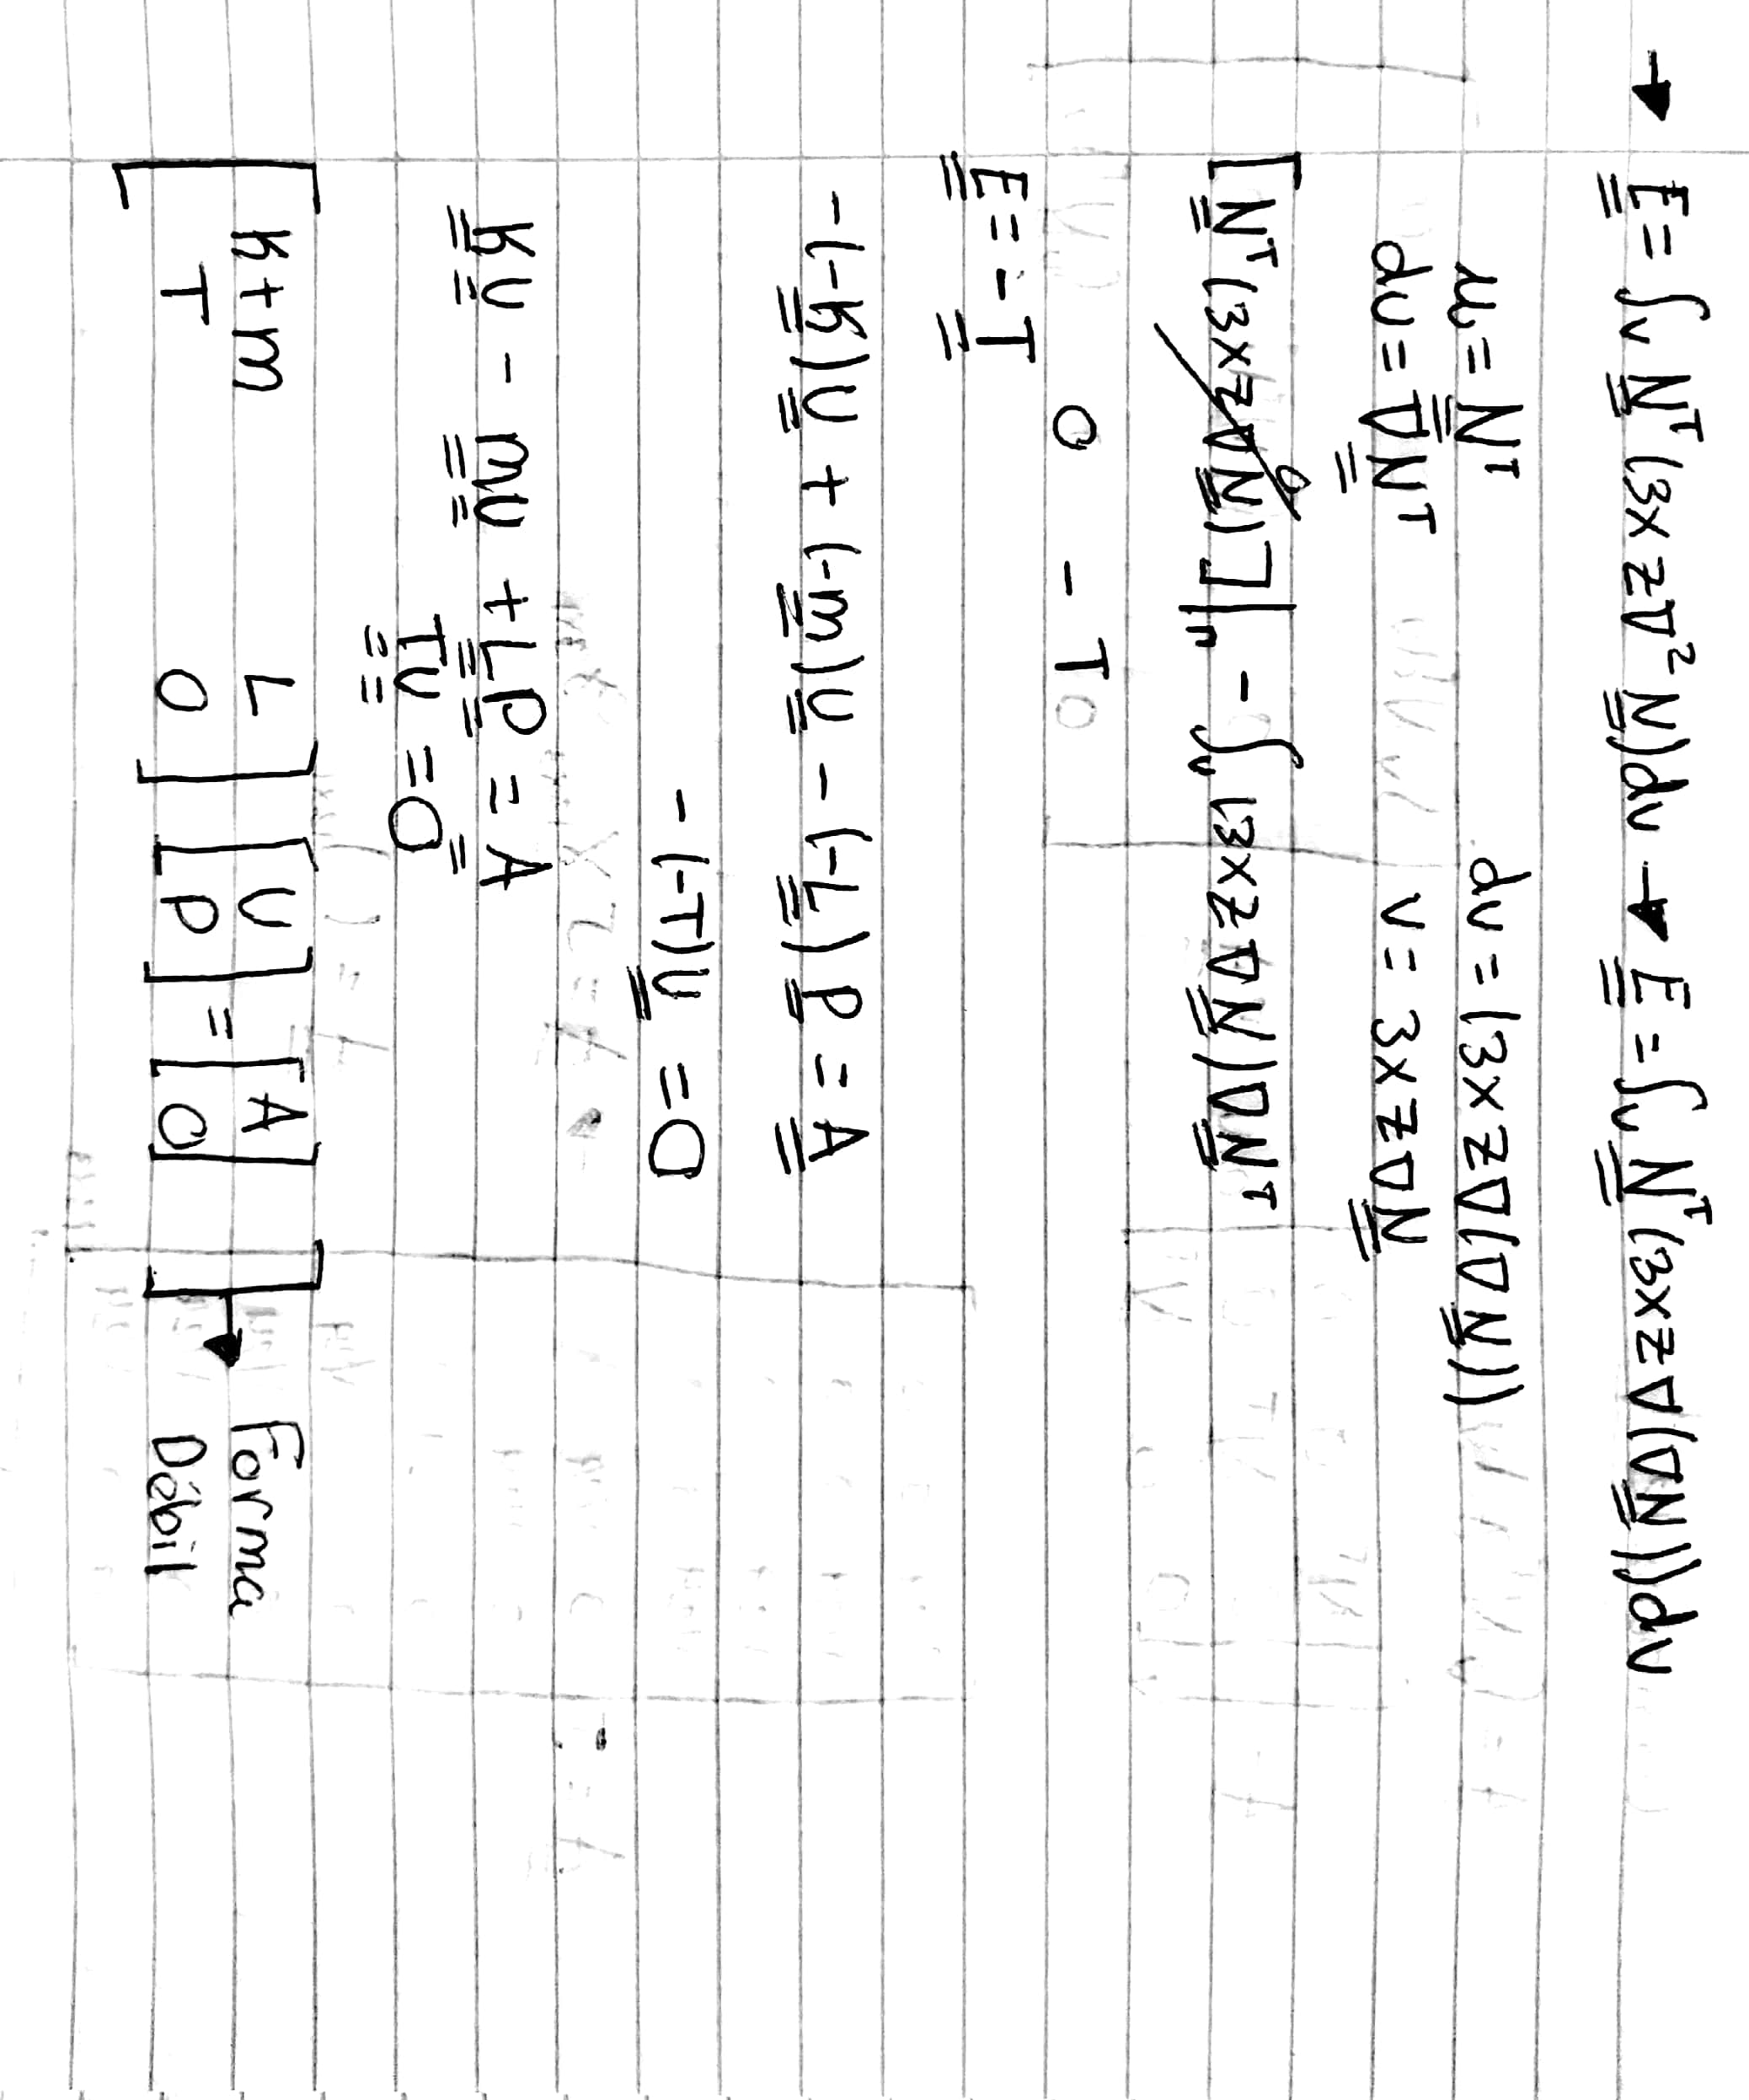 → E = ∫v Nᵀ(3xz∇²N)dv → E = ∫v Nᵀ(3xz∇(∇N))dv
u = Nᵀ dv = (3xz∇(∇N))
du = ∇Nᵀ v = 3xz∇N
[Nᵀ(3xz∇N)]|n - ∫v (3xz∇N)∇Nᵀ
0 - T
E = -T
-(-K)U + (-m)U - (-L)P = A
-(-T)U = 0
KU - mU + LP = A
TU = 0
[ K+m L ] [ U ] = [ A ] ] → Forma
T 0 ] [ P ] [ 0 ] Débil